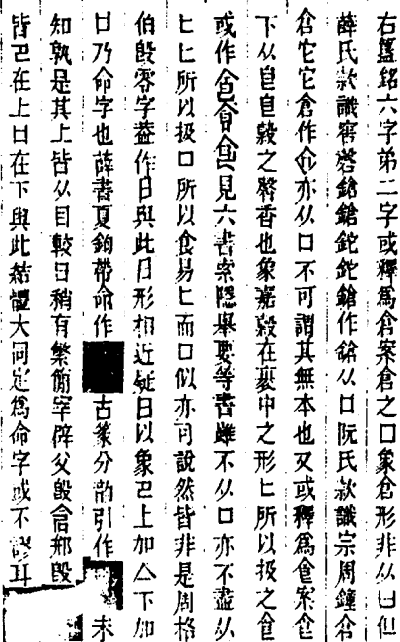 右簠銘六字弟二字或釋爲倉案倉之口象倉形非从㠯但
薛氏款識窖磬鎗鎗鉈鉈鎗作鎗从口阮氏款識宗周鐘仓
倉它它倉作仓亦从口不可謂其無本也又或釋爲食案仓
下从皀皀穀之馨香也象嘉穀在裹中之形匕所以扱之食
或作見六書索隱舉要等書雖不从口亦不盡从
匕匕所以扱口所以食易匕而口似亦可說然皆非是周格
伯𣪘零字蓋作日與此日形相近疑日以象㔾上加亼下加
口乃命字也薛書夏鉤帶命作 古篆分韻引作 未
知孰是其上皆从目較日稍有繁簡宰辟父𣪘 邢𣪘
皆㔾在上口在下與此 大同定爲命字或不謬耳